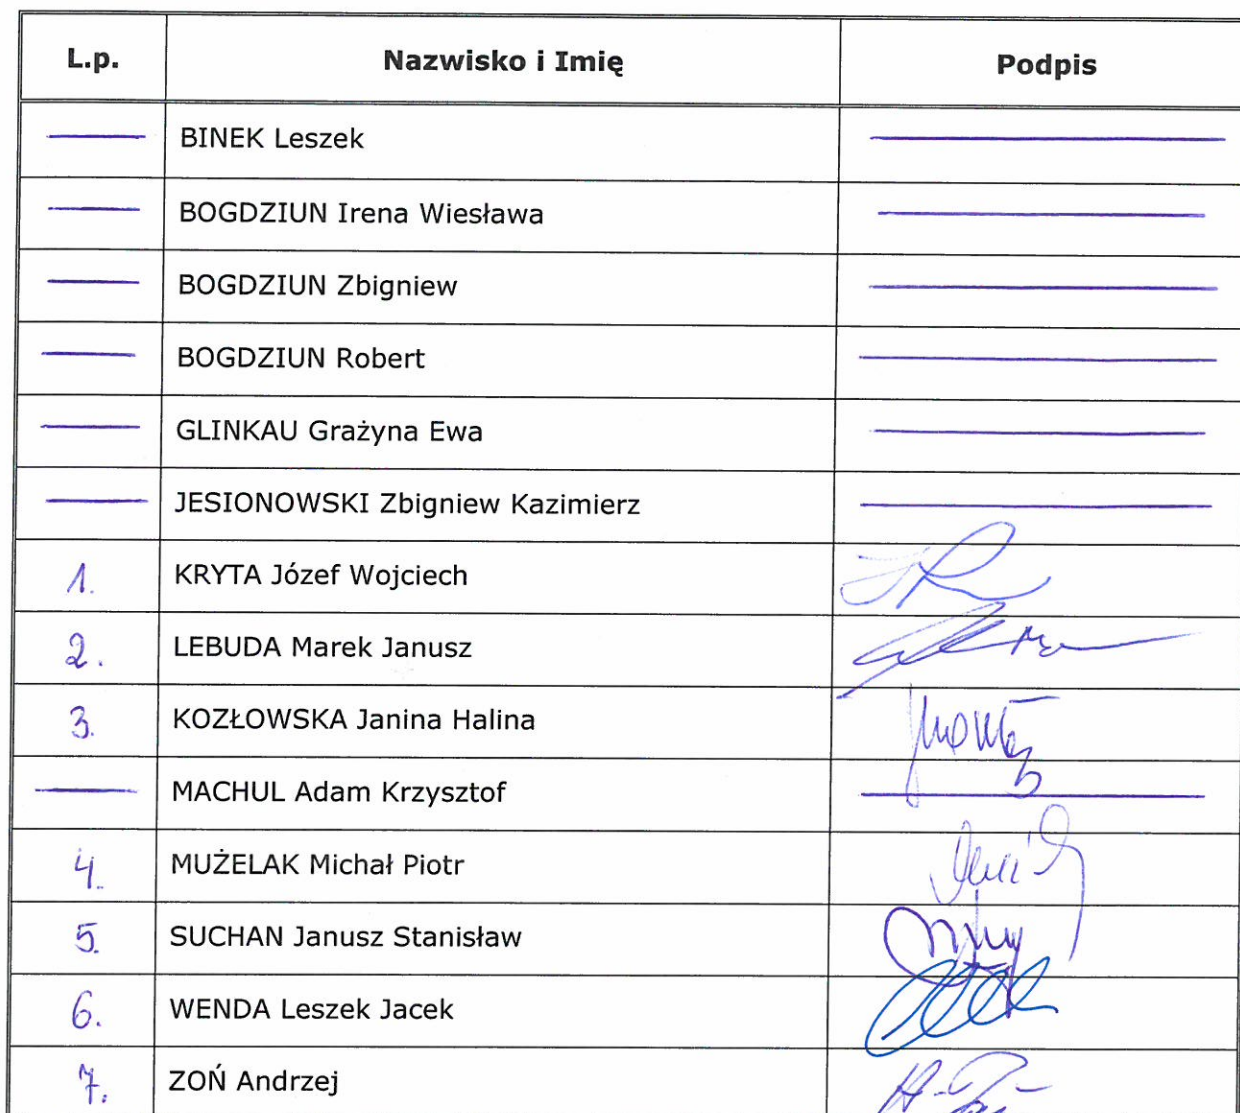 L.p. Nazwisko i Imię Podpis
BINEK Leszek
BOGDZIUN Irena Wiesława
BOGDZIUN Zbigniew
BOGDZIUN Robert
GLINKAU Grażyna Ewa
JESIONOWSKI Zbigniew Kazimierz
1. KRYTA Józef Wojciech
2. LEBUDA Marek Janusz
3. KOZŁOWSKA Janina Halina
MACHUL Adam Krzysztof
4. MUŻELAK Michał Piotr
5. SUCHAN Janusz Stanisław
6. WENDA Leszek Jacek
7. ZOŃ Andrzej